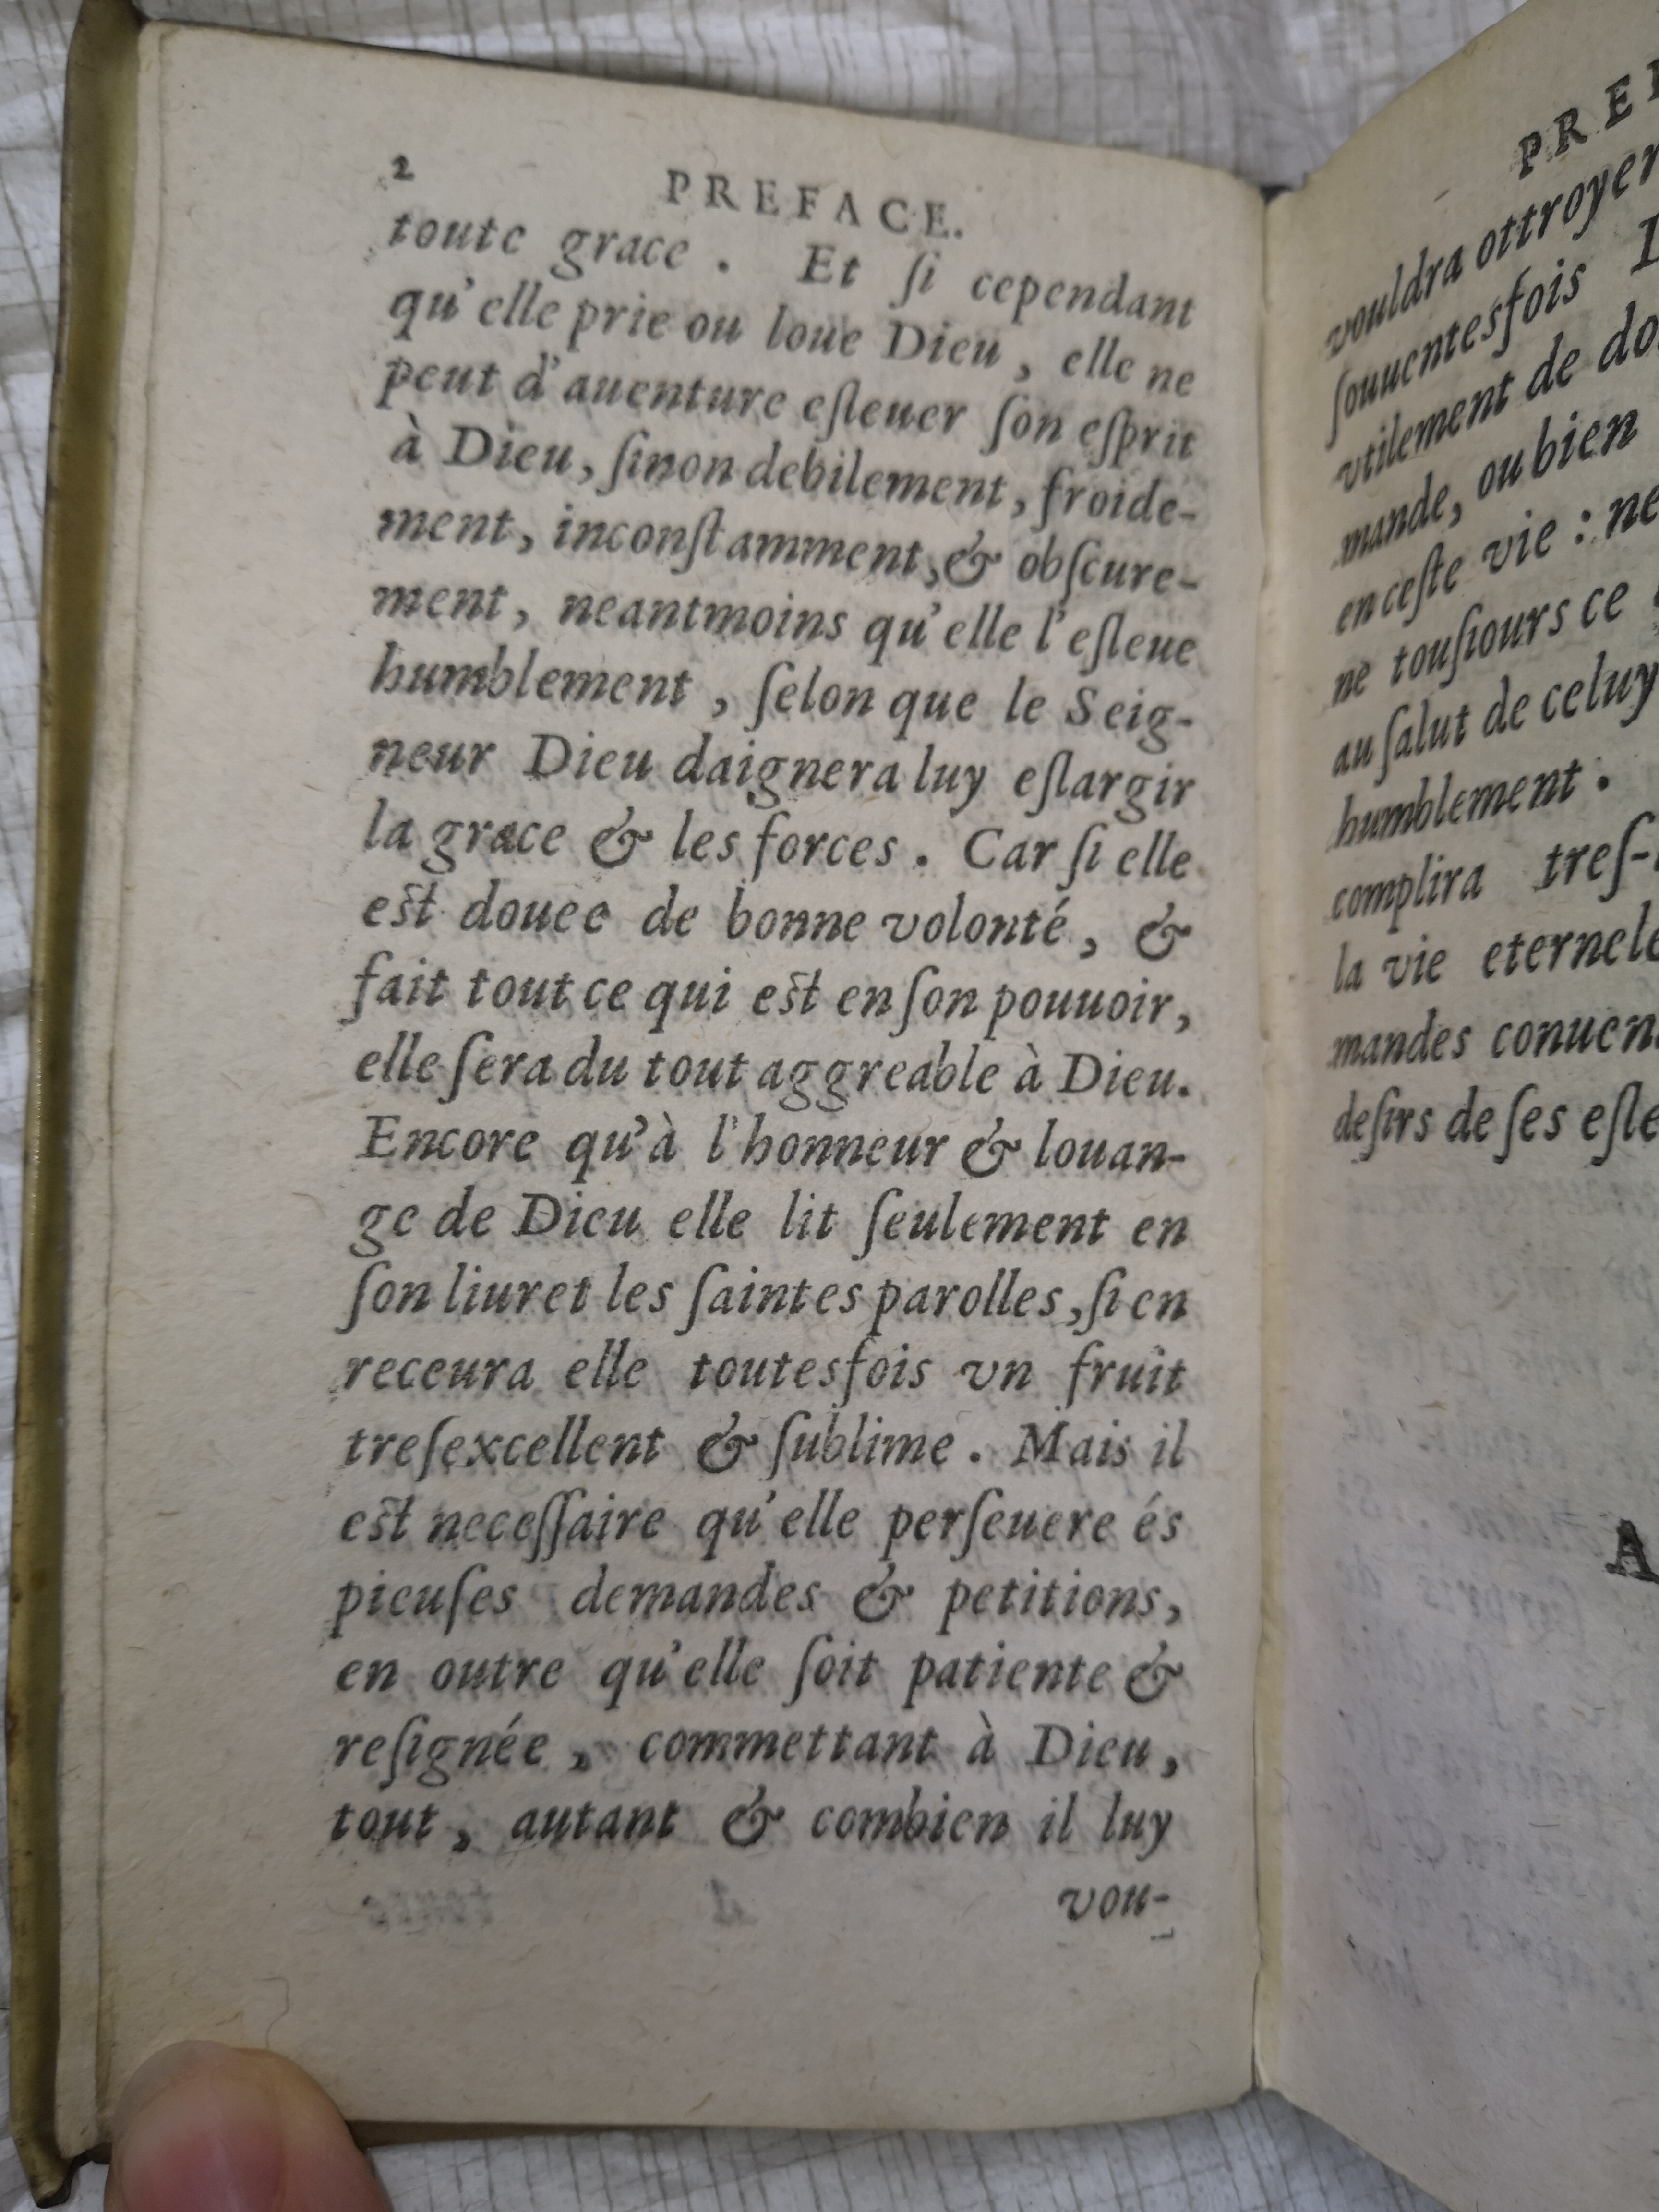 2 PREFACE.
toute grace . Et ſi cependant
qu'elle prie ou loue Dieu , elle ne
peut d'auenture eſleuer ſon eſprit
à Dieu, ſinon debilement, froide-
ment, inconſtamment, & obſcure-
ment, neantmoins qu'elle l'eſleue
humblement , ſelon que le Seig-
neur Dieu daignera luy eſlargir
la grace & les forces . Car ſi elle
est douee de bonne volonté, &
fait tout ce qui est en ſon pouuoir,
elle ſera du tout aggreable à Dieu.
Encore qu'à l'honneur & louan-
ge de Dieu elle lit ſeulement en
ſon liuret les ſaintes parolles, ſi en
receura elle toutesfois vn fruit
treſexcellent & ſublime . Mais il
est neceſſaire qu'elle perſeuere és
pieuſes demandes & petitions,
en outre qu'elle ſoit patiente &
reſignée , commettant à Dieu,
tout, autant & combien il luy
vou-
PREF
vouldra ottroyer
ſouuentesfois
vtilement de
mande, ou bien
en ceſte vie : ne
ne touſiours ce
au ſalut de celuy
humblement .
complira treſ-
la vie
mandes
deſirs de ſes
A